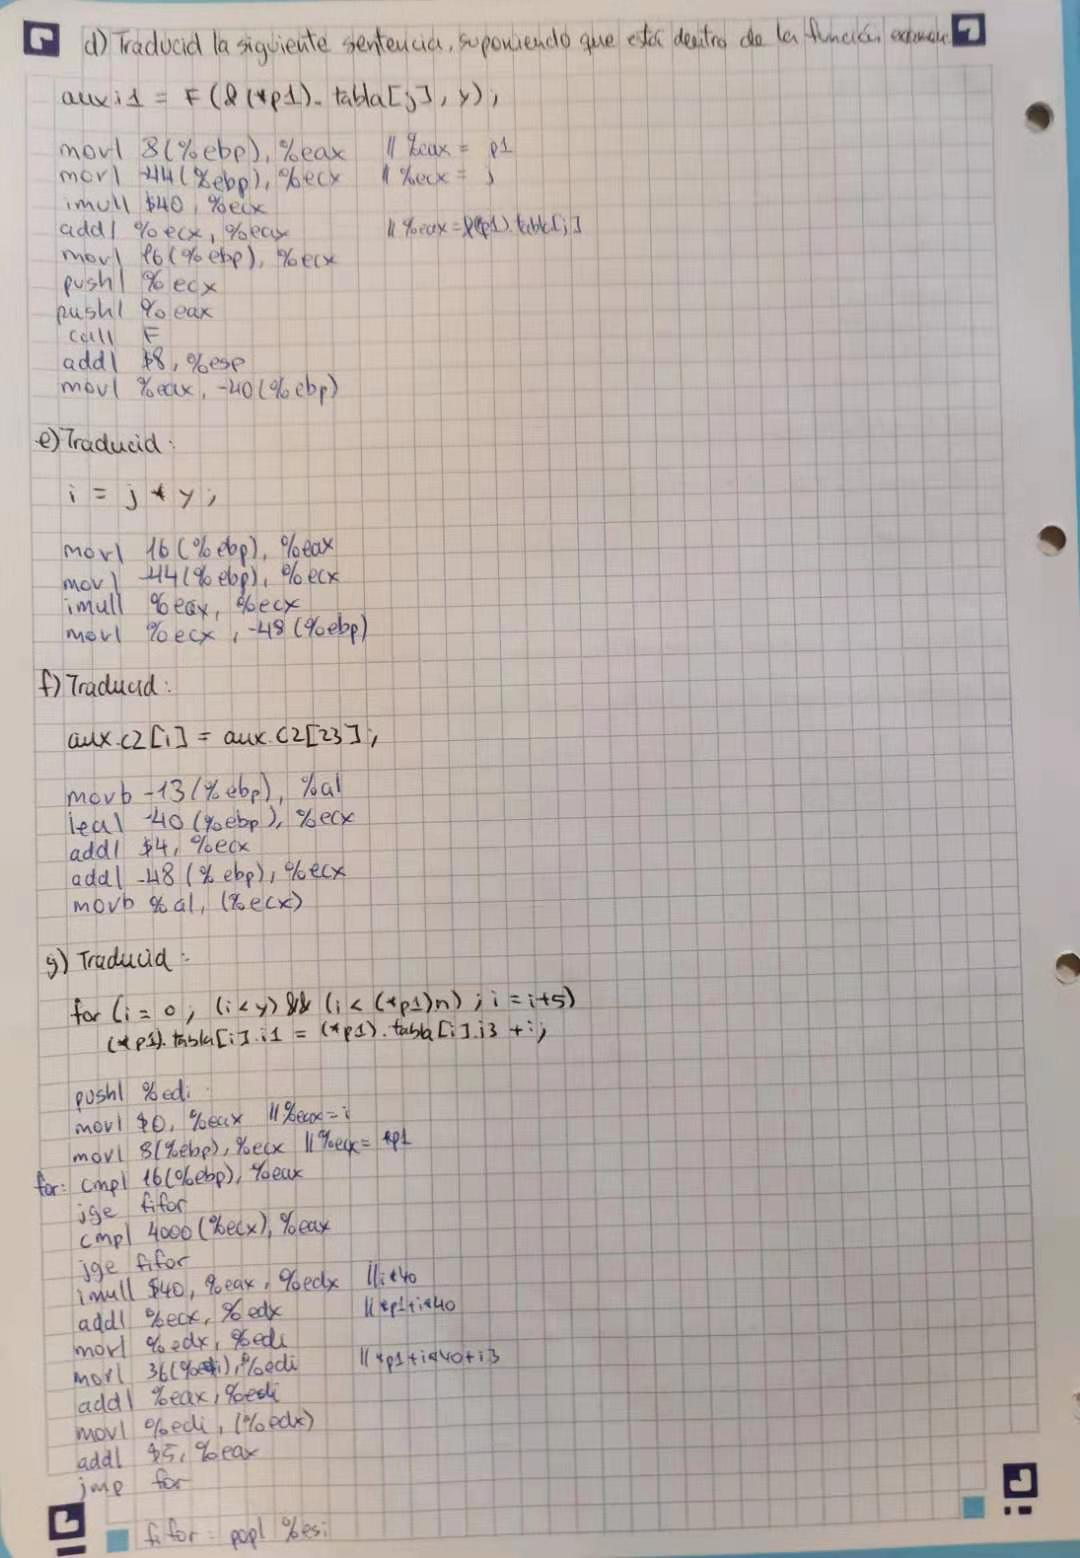 d) Traducid la siguiente sentencia, suponiendo que está dentro de la función
aux.i1 = F(&(*p1).tabla[j], y);
movl 8(%ebp), %eax // %eax = p1
movl -44(%ebp), %ecx // %ecx = j
imull $40, %ecx
addl %ecx, %eax // %eax = &(*p1).tabla[j]
movl 16(%ebp), %ecx
pushl %ecx
pushl %eax
call F
addl $8, %esp
movl %eax, -40(%ebp)
e) Traducid:
i = j * y;
movl 16(%ebp), %eax
movl -44(%ebp), %ecx
imull %eax, %ecx
movl %ecx, -48(%ebp)
f) Traducid:
aux.c2[i] = aux.c2[23];
movb -13(%ebp), %al
leal -40(%ebp), %ecx
addl $4, %ecx
addl -48(%ebp), %ecx
movb %al, (%ecx)
g) Traducid:
for (i = 0; (i < y) && (i < (*p1)n); i = i+5)
(*p1).tabla[i].i1 = (*p1).tabla[i].i3 + i;
pushl %edi
movl $0, %eax // %eax = i
movl 8(%ebp), %ecx // %ecx = *p1
for: cmpl 16(%ebp), %eax
jge fifor
cmpl 4000(%ecx), %eax
jge fifor
imull $40, %eax, %edx // i*40
addl %ecx, %edx // *p1+i*40
movl %edx, %edi
movl 36(%edi), %edi // *p1+i*40+i3
addl %eax, %edi
movl %edi, (%edx)
addl $5, %eax
jmp for
fifor: popl %esi